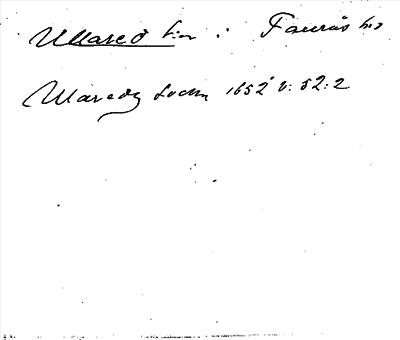 Ullared sn : Faurås hd
Ullaredz Sochn 1652 v: 52:2